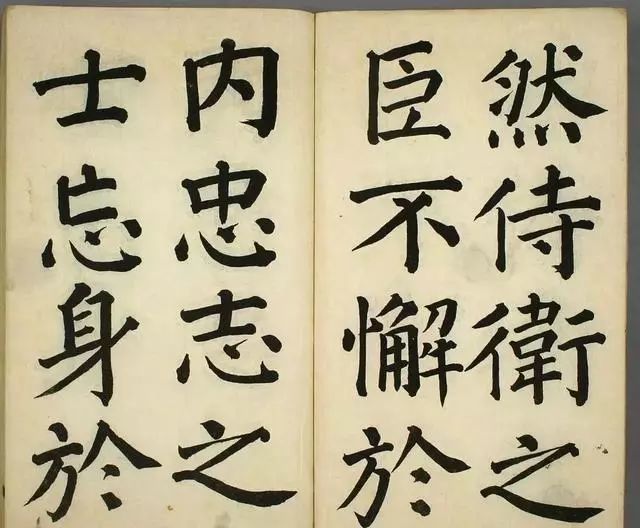 然侍衛之
臣不懈於
内忠志之
士忘身於